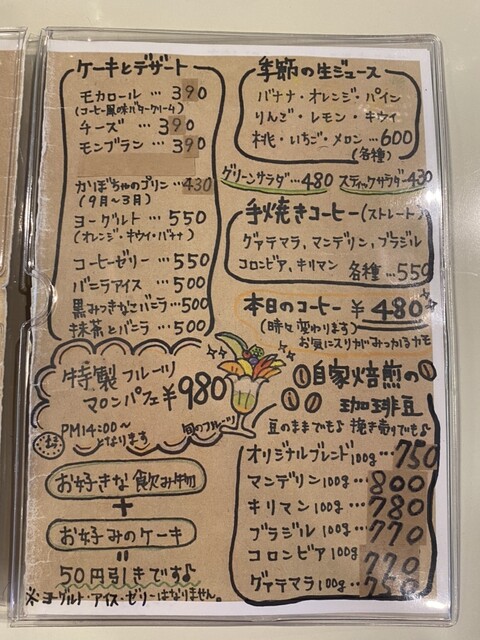 ケーキとデザート
モカロール … 390
(コーヒー風味バタークリーム)
チーズ … 390
モンブラン … 390
かぼちゃのプリン … 430
(9月～3月)
ヨーグルト … 550
(オレンジ・キウイ・バナナ)
コーヒーゼリー … 550
バニラアイス … 500
黒みつきなこバニラ … 500
抹茶とバニラ … 500
特製フルーツ
マロンパフェ ¥980
PM14:00～
となります
旬のフルーツ
お好きな飲み物
+
お好みのケーキ
=
50円引きです♪
※ヨーグルト・アイス・ゼリーはなりません。
季節の生ジュース
バナナ・オレンジ・パイン
りんご・レモン・キウイ
桃・いちご・メロン … 600
(各種)
グリーンサラダ … 480 スティックサラダ … 430
手焼きコーヒー(ストレート)
グァテマラ、マンデリン、ブラジル
コロンビア、キリマン 各種 … 550
本日のコーヒー ¥480
(時々変わります)
お気にスリがみつかるカモ
自家焙煎の
珈琲豆
豆のままでも♪ 挽き売りでも♪
オリジナルブレンド 100g … 750
マンデリン 100g … 800
キリマン 100g … 780
ブラジル 100g … 770
コロンビア 100g … 770
グァテマラ 100g … 750